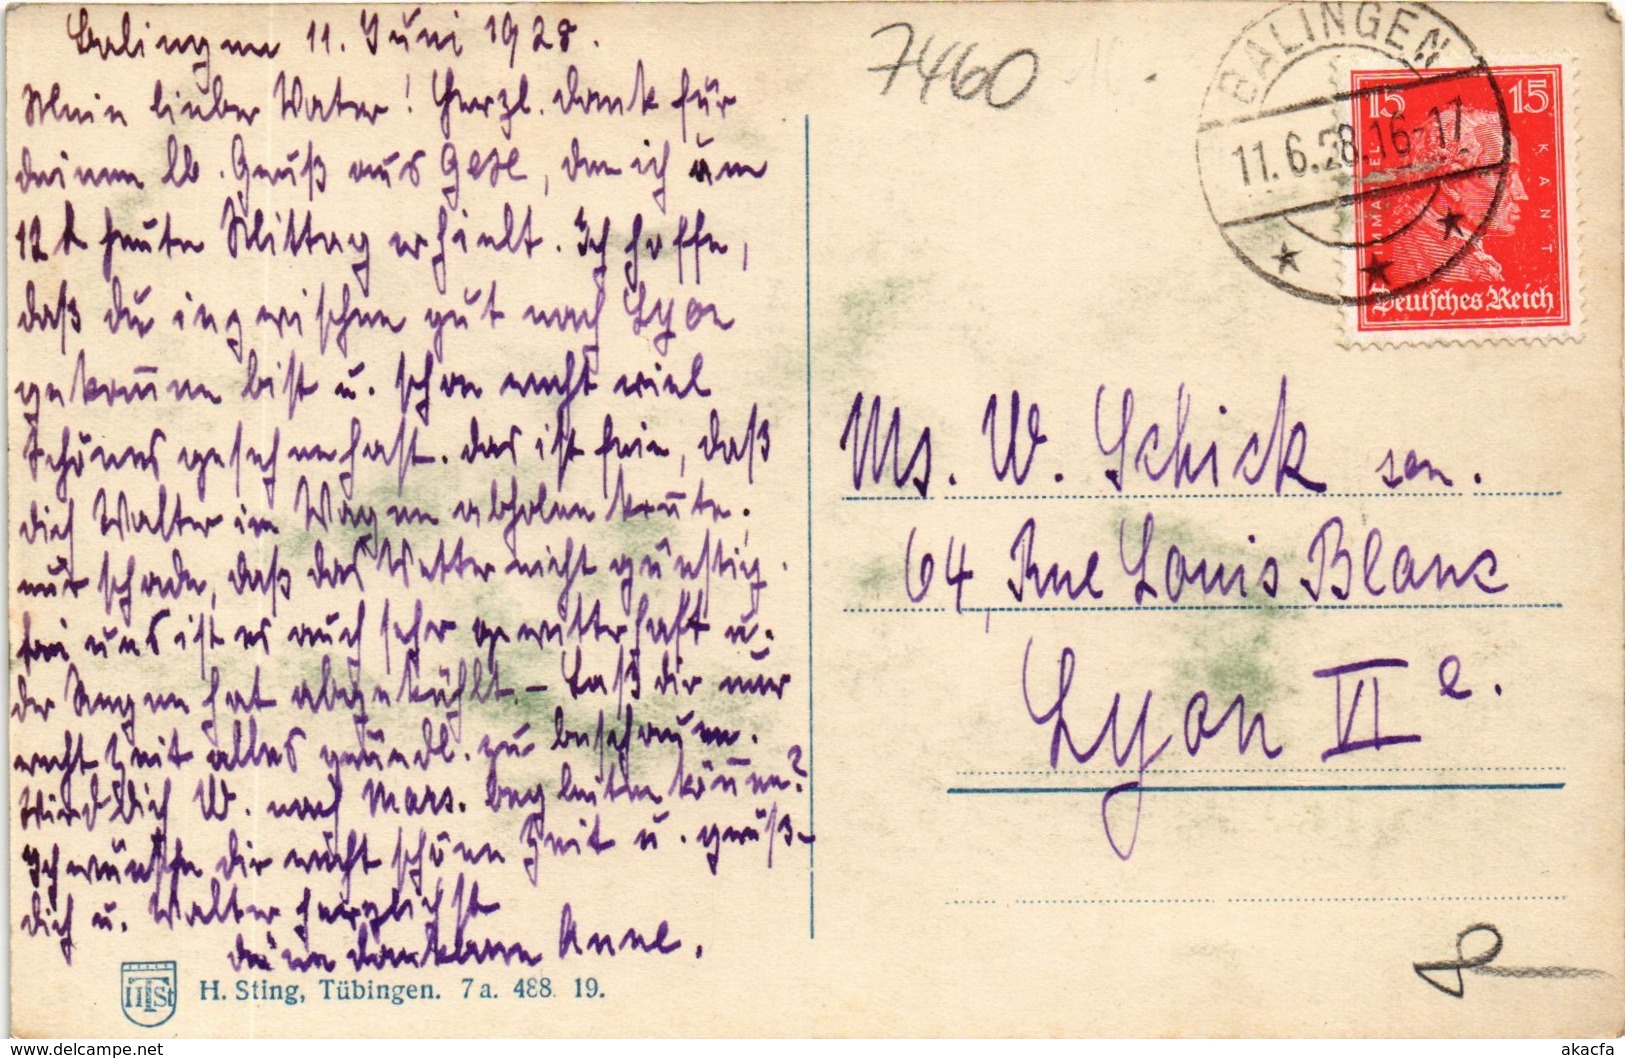 Balingen 11. Juni 1928.
Mein lieber Vater! Herzl. Dank für
deinen lb. Gruß aus, den ich um
12 h heute Mittag erhielt. Ich hoffe,
daß du inzwischen gut nach Lyon
gekommen bist u. schon recht viel
Schönes gesehen hast. Das ist fein, daß
dich Walter im Wagen abholen konnte.
nur schade, daß das Wetter nicht günstig.
bei uns ist es auch sehr gewitterhaft u.
der Regen hat abgekühlt. – Laß dir nur
recht Zeit alles gründl. zu beschauen.
Wird dich W. nach Mars. begleiten können?
Ich wünsche dir recht schöne Zeit u. grüß-
dich u. Walter herzlichst
deine dankbare Anne.
H. Sting, Tübingen. 7a. 488. 19.
HTSt
7460
BALINGEN
11.6.28.16-17
15 15
IMMANUEL KANT
Deutsches Reich
Ms. W. Schick sen.
64, Rue Louis Blanc
Lyon VI e.
akacfa
www.delcampe.net